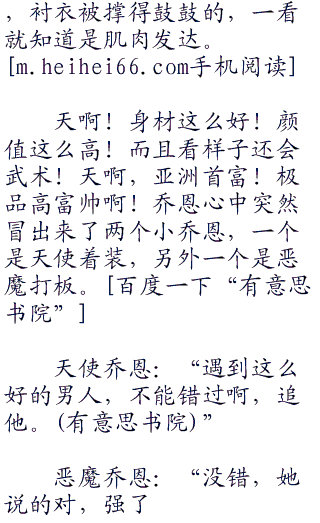 ，衬衣被撑得鼓鼓的，一看
就知道是肌肉发达。
[m.heihei66.com手机阅读]
天啊！身材这么好！颜
值这么高！而且看样子还会
武术！天啊，亚洲首富！极
品高富帅啊！乔恩心中突然
冒出来了两个小乔恩，一个
是天使着装，另外一个是恶
魔打板。[百度一下“有意思
书院”]
天使乔恩：“遇到这么
好的男人，不能错过啊，追
他。(有意思书院)”
恶魔乔恩：“没错，她
说的对，强了